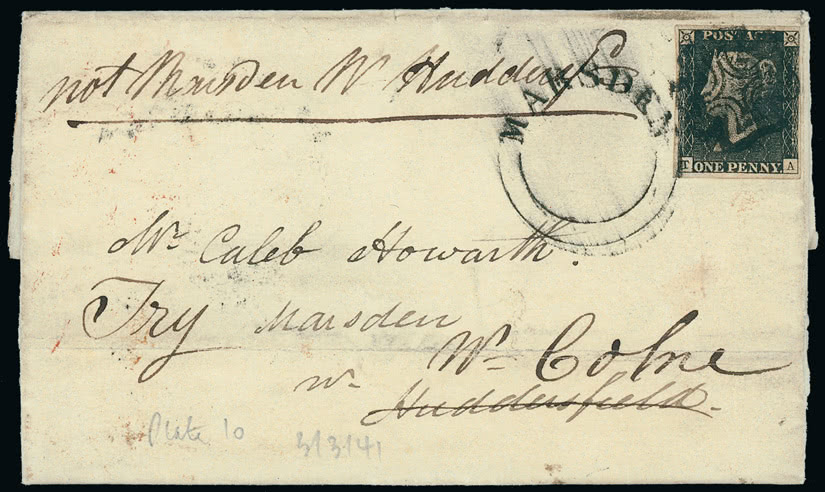 not Marsden Nr Hudders
MARSDEN
POSTAGE
T ONE PENNY A
Mr Caleb Howarth.
Try Marsden
Nr Colne
nr Huddersfield.
Plate 10 3/3/41